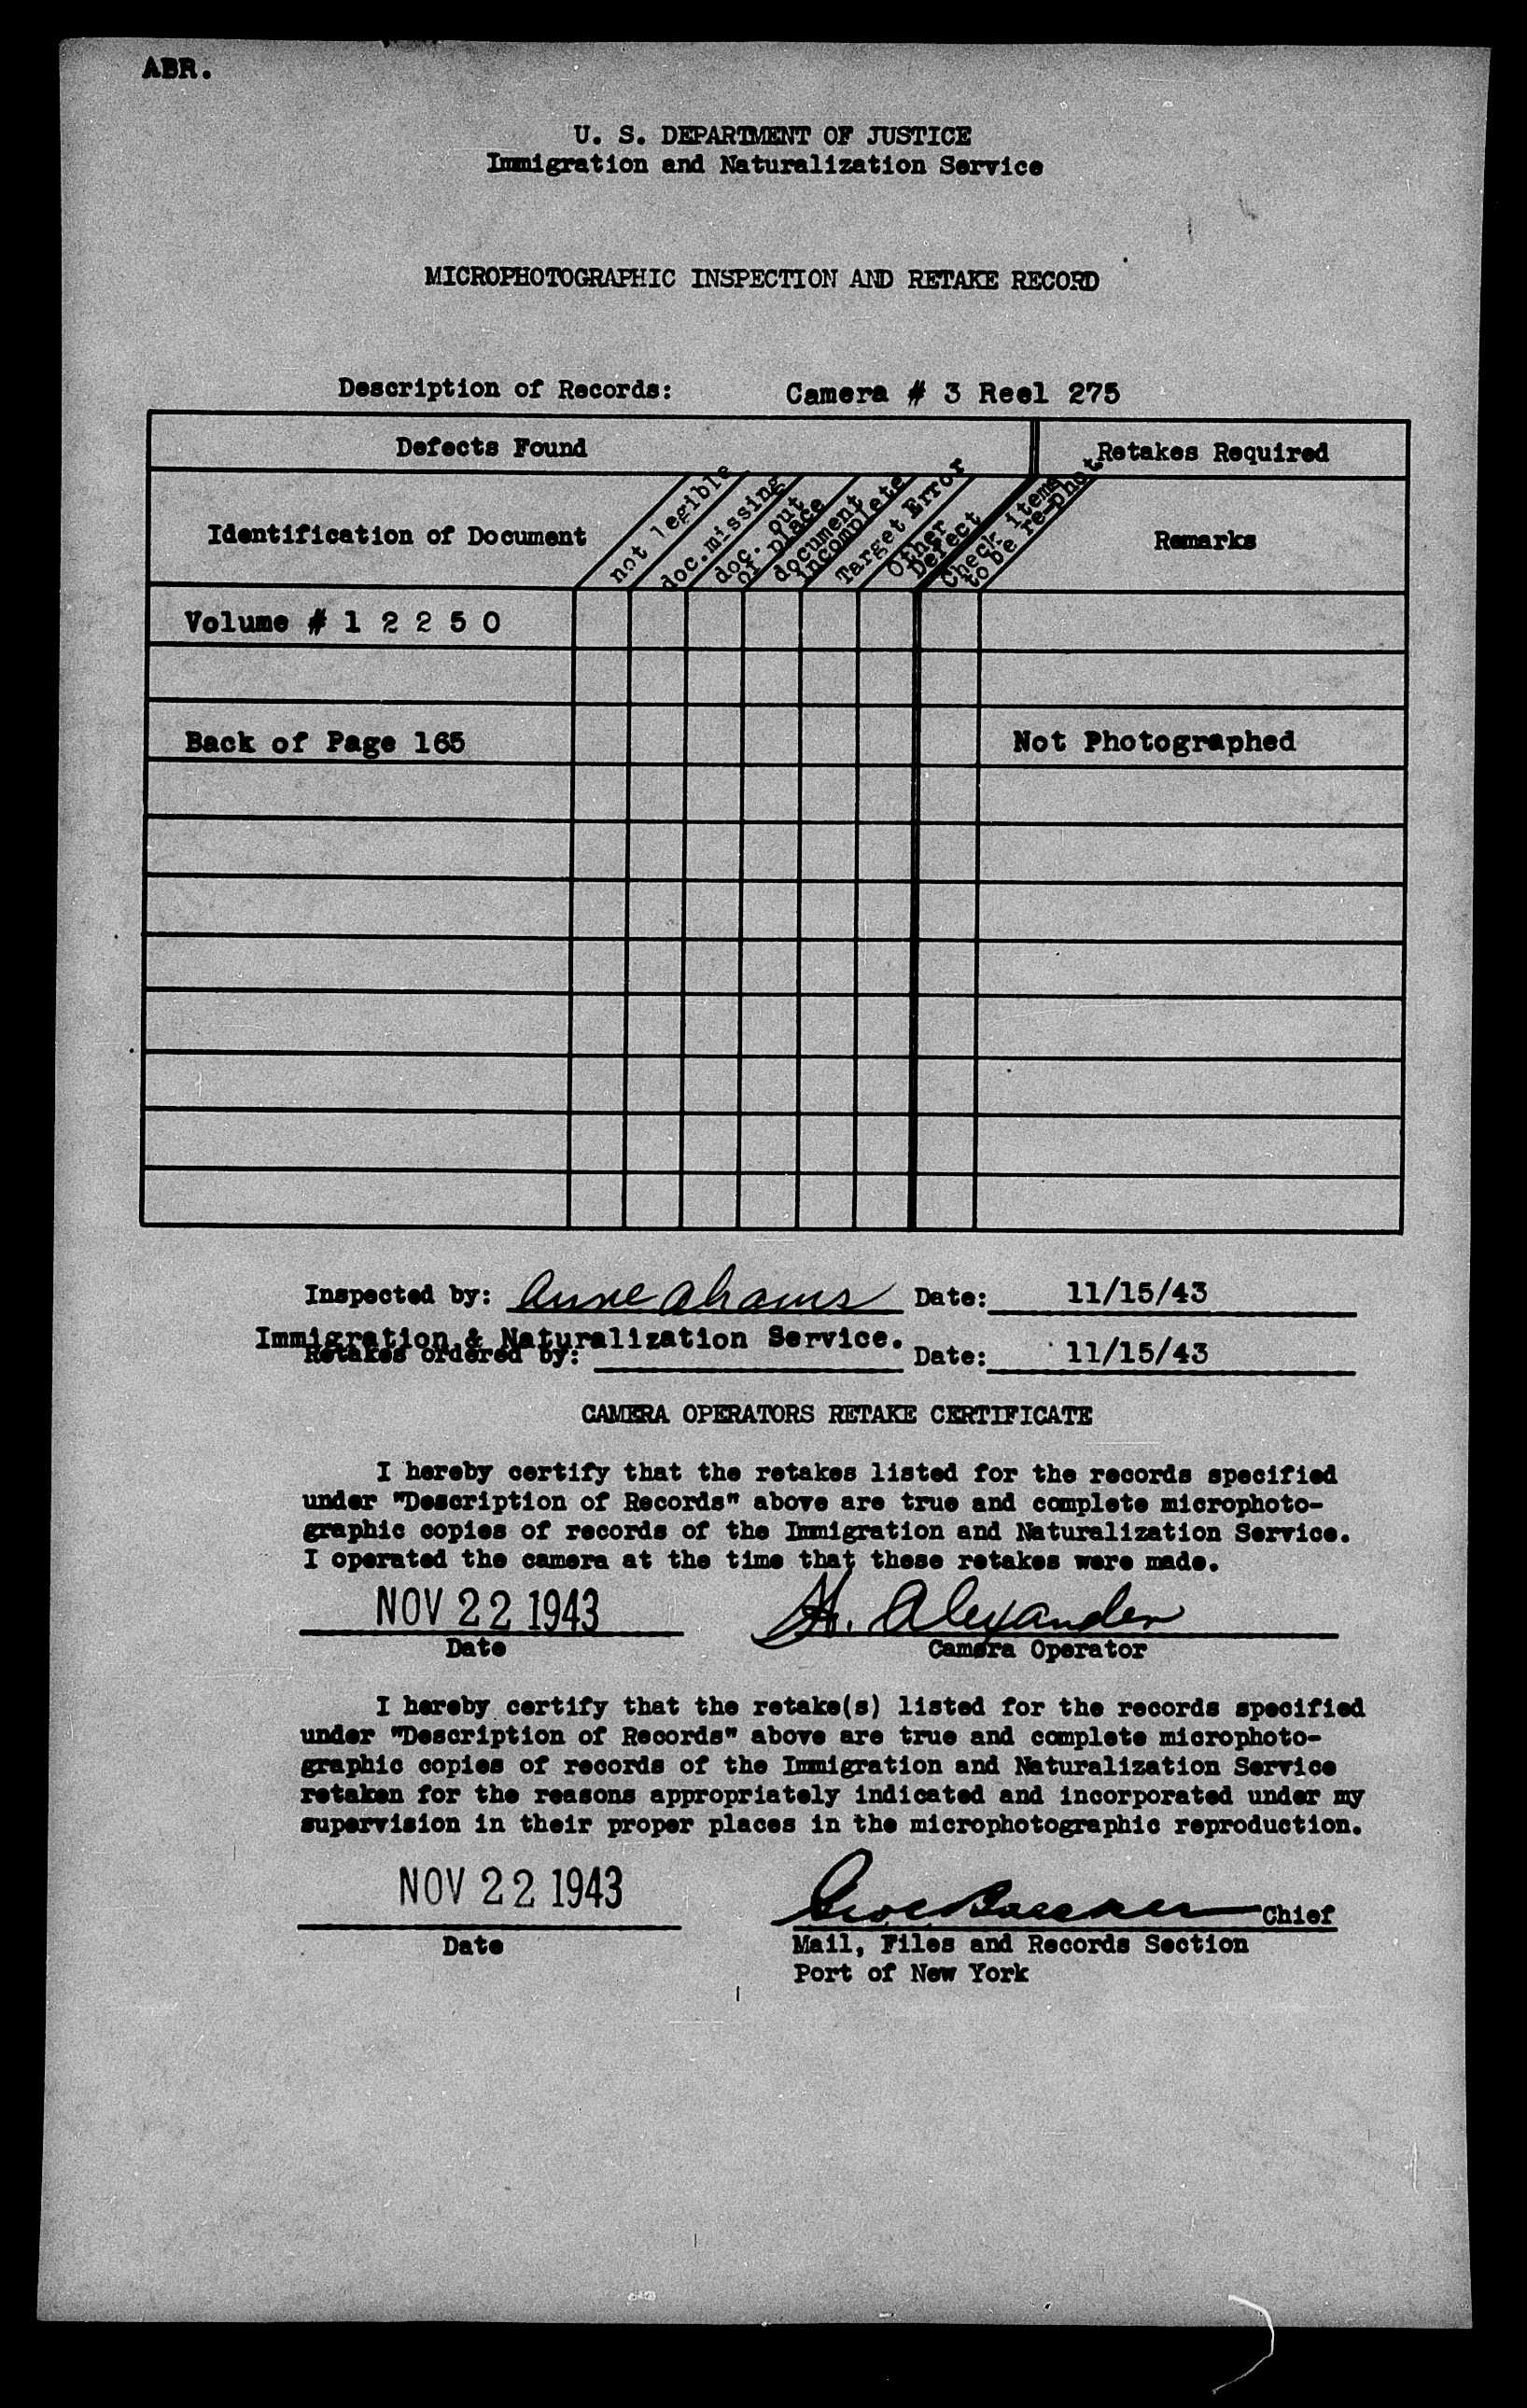 ABR.
U. S. DEPARTMENT OF JUSTICE
Immigration and Naturalization Service
MICROPHOTOGRAPHIC INSPECTION AND RETAKE RECORD
Description of Records: Camera # 3 Reel 275
Defects Found Retakes Required
Identification of Document
not legible
doc.missing
doc. out
of place
document
incomplete
Target Error
Other
Defect
Check items
to be re-phot
Remarks
Volume # 1 2 2 5 0
Back of Page 165 Not Photographed
Inspected by: Anne Abrams Date: 11/15/43
Immigration & Naturalization Service.
Retakes ordered by: Date: 11/15/43
CAMERA OPERATORS RETAKE CERTIFICATE
I hereby certify that the retakes listed for the records specified
under "Description of Records" above are true and complete microphoto-
graphic copies of records of the Immigration and Naturalization Service.
I operated the camera at the time that these retakes were made.
NOV 22 1943 H. Alexander
Date Camera Operator
I hereby certify that the retake(s) listed for the records specified
under "Description of Records" above are true and complete microphoto-
graphic copies of records of the Immigration and Naturalization Service
retaken for the reasons appropriately indicated and incorporated under my
supervision in their proper places in the microphotographic reproduction.
NOV 22 1943 Chief
Date Mail, Files and Records Section
Port of New York